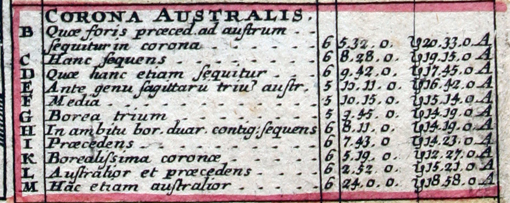 CORONA AUSTRALIS.
B Quæ foris præced. ad austrum
sequitur in corona 6 5.32.0. ♑20.33.0 A
C Hanc sequens 6 8.28.0. ♑19.15.0 A
D Quæ hanc etiam sequitur 6 9.42.0. ♑17.45.0 A
E Ante genu sagittarij triu? austr. 5 11.11.0. ♑16.42.0 A
F Media 5 10.15.0. ♑15.14.0 A
G Borea trium 5 9.45.0. ♑14.19.0 A
H In ambitu bor. duar. contig. sequens 6 8.11.0. ♑14.19.0 A
I Præcedens 6 7.43.0 ♑14.23.0 A
K Borealissima coronæ 6 5.19.0. ♑12.27.0 A
L Australior et præcedens 6 2.52.0. ♑15.21.0 A
M Hâc etiam australior 6 24.0.0. ♑18.58.0 A